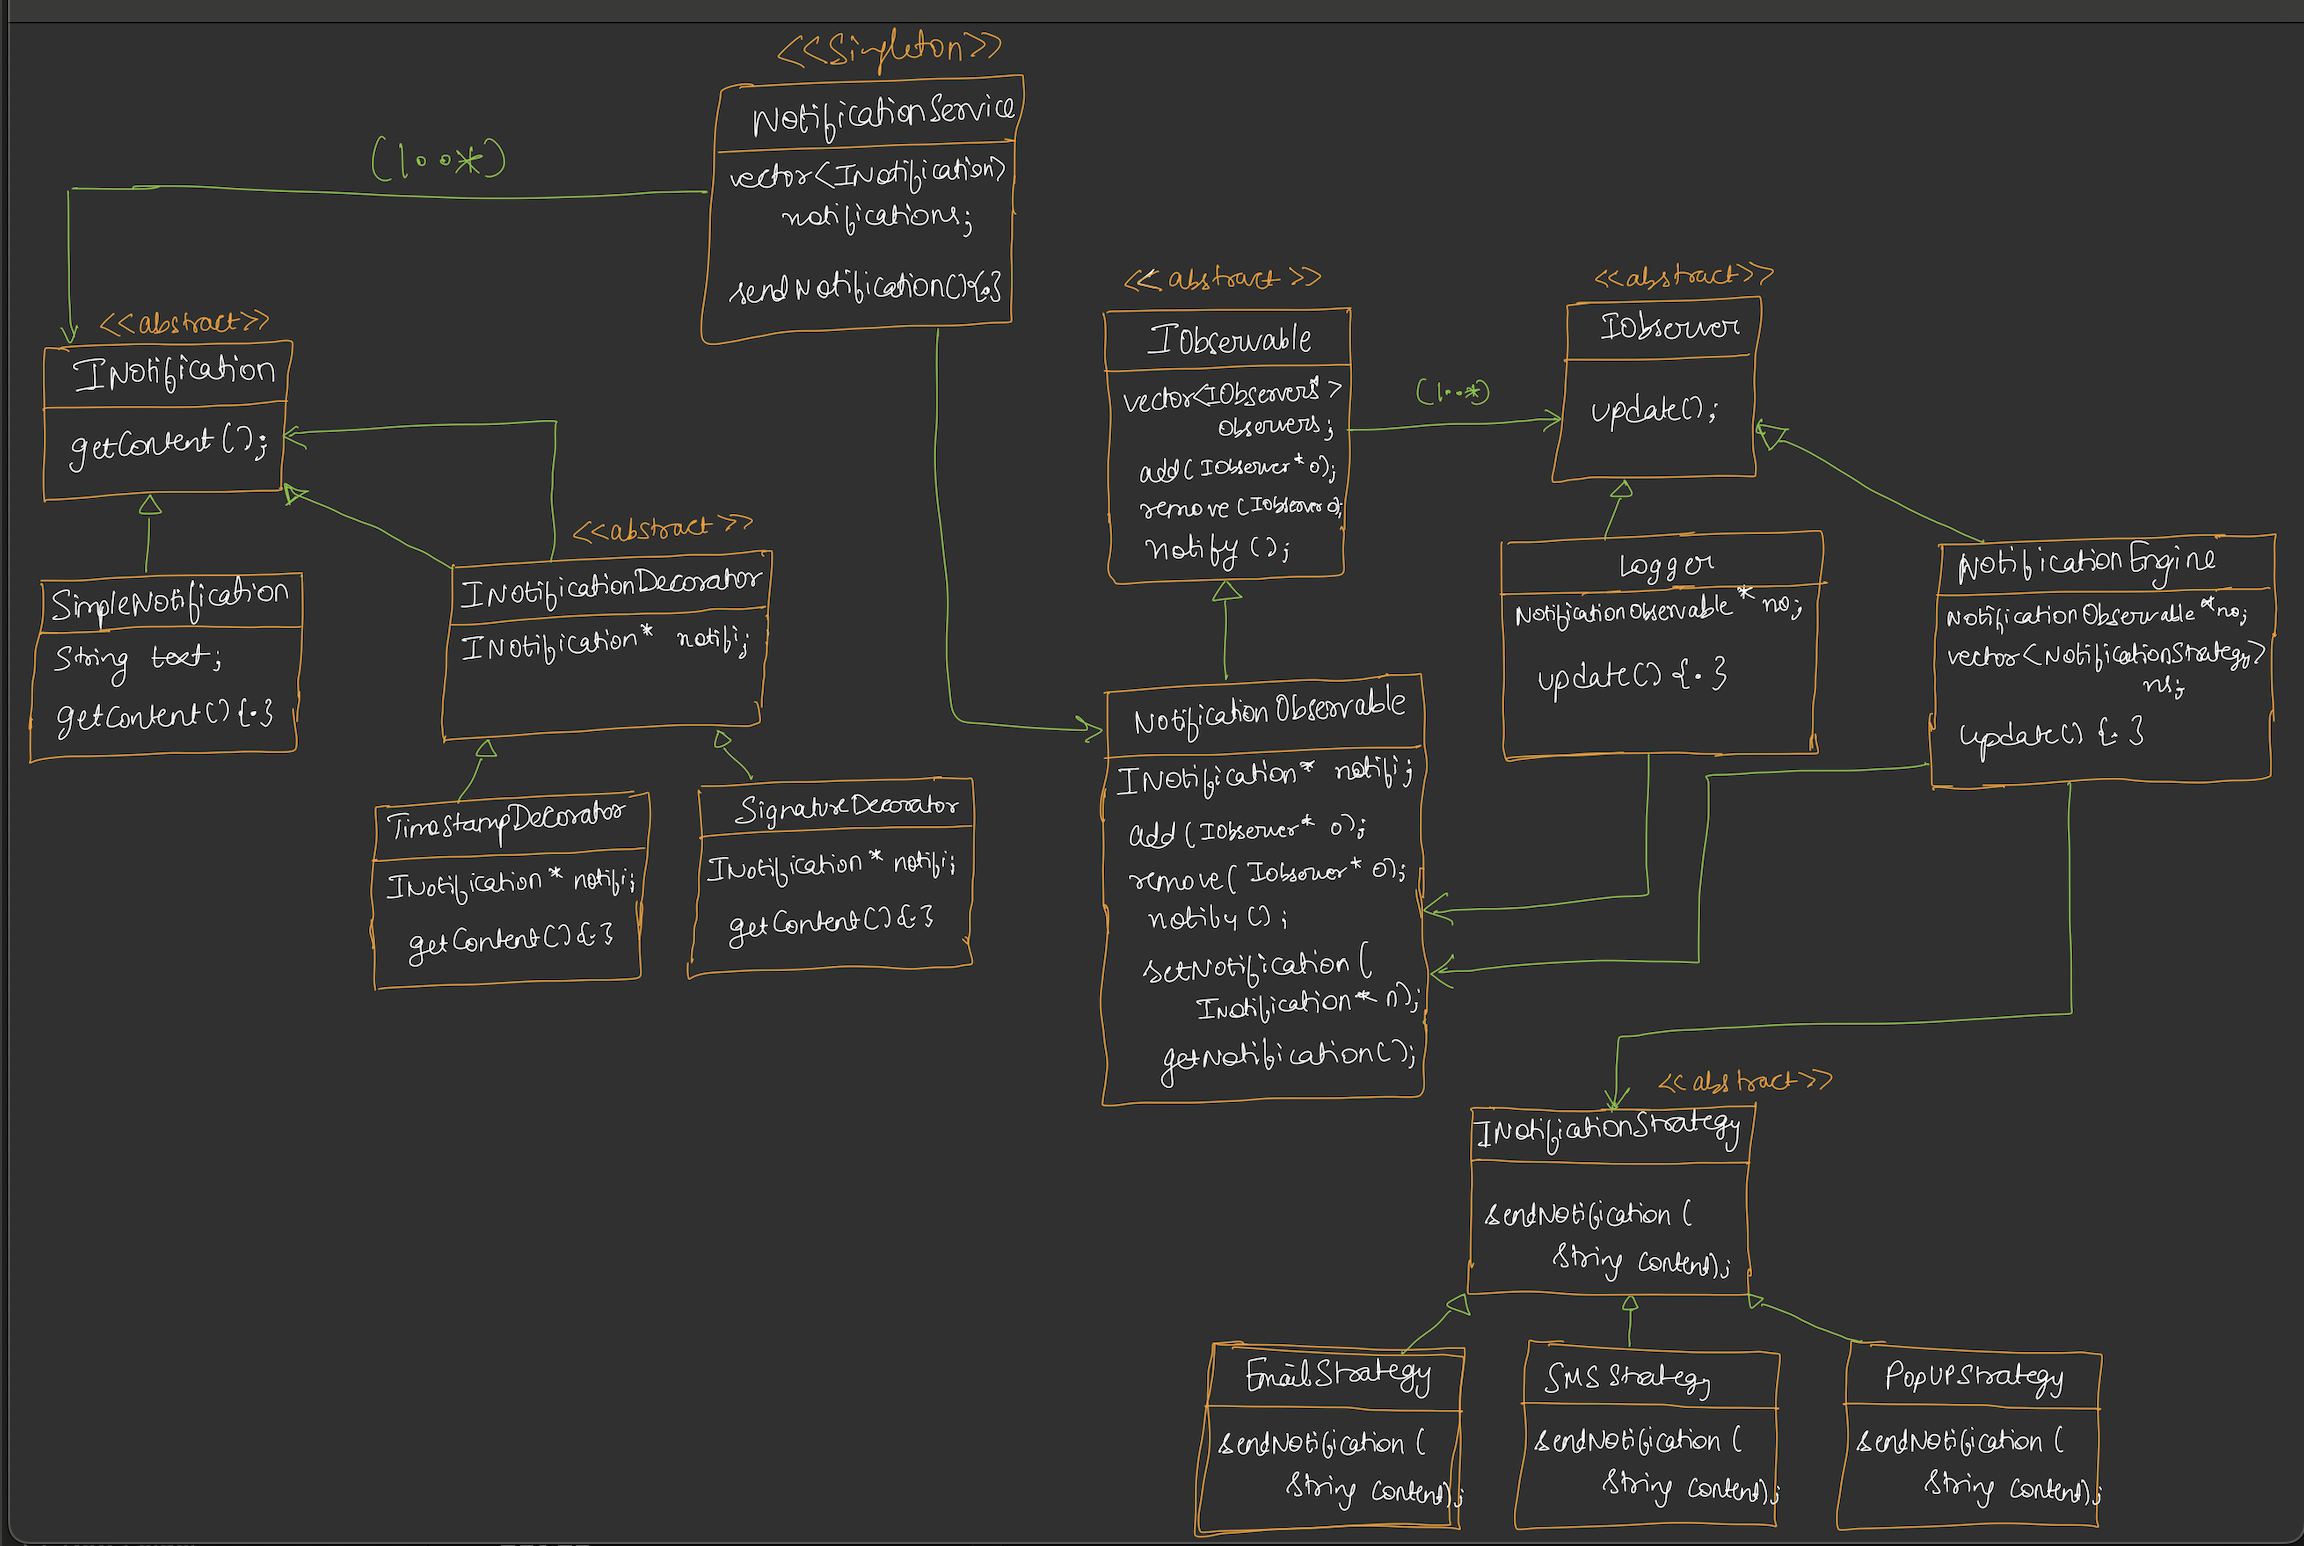 <<Singleton>>
NotificationService
vector<INotification>
notifications;
sendNotification(){.}
(1..*)
<<abstract>>
INotification
getContent();
SimpleNotification
String text;
getContent(){.}
<<abstract>>
INotificationDecorator
INotification* notifi;
TimeStampDecorator
INotification* notifi;
getContent(){.}
SignatureDecorator
INotification* notifi;
getContent(){.}
<<abstract>>
IObservable
vector<IObservers*>
observers;
add(IObserver* o);
remove(IObserver o);
notify();
(1..*)
<<abstract>>
IObserver
update();
NotificationObservable
INotification* notifi;
add(IObserver* o);
remove(IObserver* o);
notify();
setNotification(
INotification* n);
getNotification();
Logger
NotificationObservable* no;
update(){.}
NotificationEngine
NotificationObservable*no;
vector<NotificationStrategy>
ns;
update(){.}
<<abstract>>
INotificationStrategy
sendNotification(
String content);
EmailStrategy
sendNotification(
String content);
SMSStrategy
sendNotification(
String content);
PopUPStrategy
sendNotification(
String content);